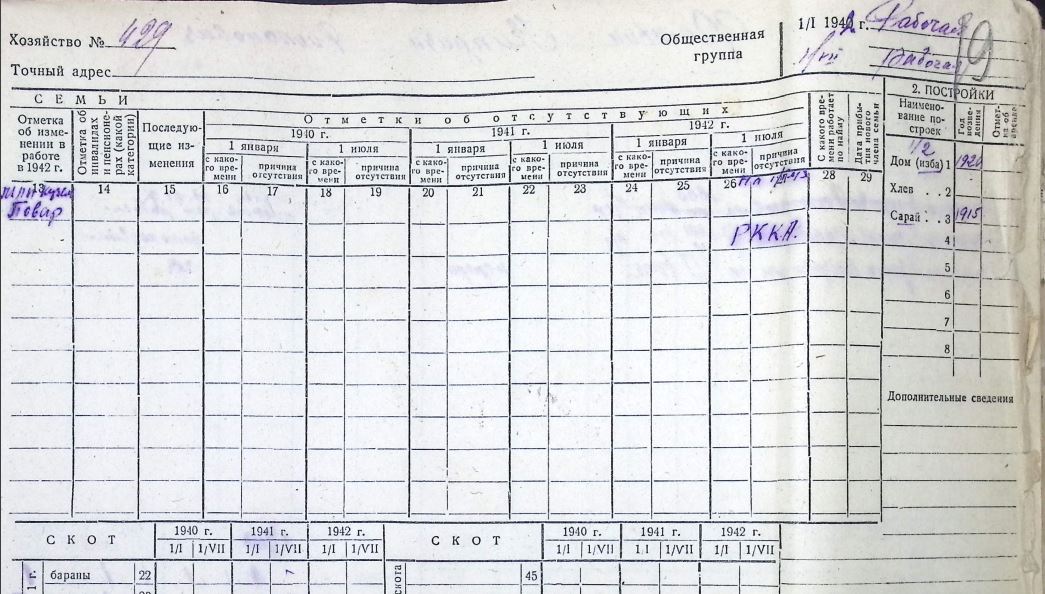 Хозяйство № 429
Точный адрес
Общественная группа
1/I 1942 г. Рабочая
1/VII Рабочая
9
СЕМЬИ
Отметка об изменении в работе в 1942 г.
Отметка об инвалидах и пенсионерах (какой категории)
Последующие изменения
Отметки об отсутствующих
1940 г. 1941 г. 1942 г.
1 января 1 июля 1 января 1 июля 1 января 1 июля
с какого времени причина отсутствия с какого времени причина отсутствия с какого времени причина отсутствия с какого времени причина отсутствия с какого времени причина отсутствия с какого времени причина отсутствия
С какого времени работает по найму
Дата прибытия нового члена семьи
13 14 15 16 17 18 19 20 21 22 23 24 25 26 28 29
Повар
РККА.
2. ПОСТРОЙКИ
Наименование построек
Год возведения
1/2
Дом (изба) 1 1920
Хлев . . 2
Сарай . . 3 1915
4
5
6
7
8
Дополнительные сведения
СКОТ 1940 г. 1941 г. 1942 г. СКОТ 1940 г. 1941 г. 1942 г.
1/I 1/VII 1/I 1/VII 1/I 1/VII 1/I 1/VII 1.I 1/VII 1/I 1/VII
бараны 22 скота 45